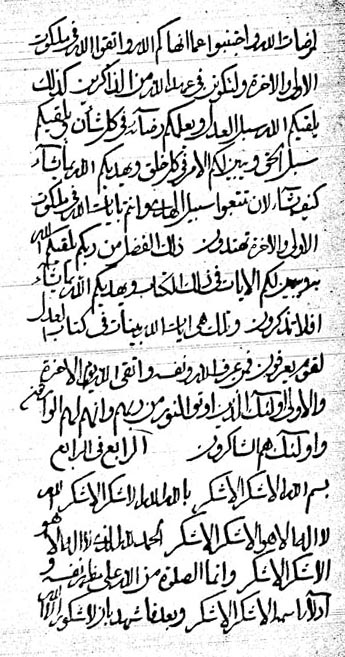 لمرضات الله واجتنبوا عما انها كم الله واتقوا الله في ملكوت
الاولى والاخرة ولتكونن في عهد الله من الذاكرين كذلك
يلقيكم الله سبل العدل ويعلمكم رضائه في كل شأن ويلقيكم
سبل الحق ويبين لكم الامر في كل خلق ويهديكم الله بما يشآء
كيف يشآء لان تتبعوا سبيل الهدى وانتم بايات الله في ملكوت
الاولى والاخرة تهتدون ذلك الفضل من ربكم يلقيكم الله
ويبين لكم الايات في ذلك الكتاب ويهديكم الله بما يشآء
افلا تذكرون وتلك هي ايات الله بينات في كتاب العدل
لقوم يعرفون في عرف الله ونفسه واتقى الله يوم الاخرة
والاولى اولئك الذين اوتوا النور من ربهم وانهم لهم الوارثون
واولئك هم الشاكرون الرابع في الرابع
بسم الله الاشكر الاشكر بالله الله الاشكر الاشكر الله
لا اله الا هو الاشكر الاشكر الحمد لله الذي لا اله الا هو
الاشكر الاشكر وانما الصلوة من الله على مظهر نفسه و
اسمه الاشكر الاشكر وبعد فاشهد بان الله